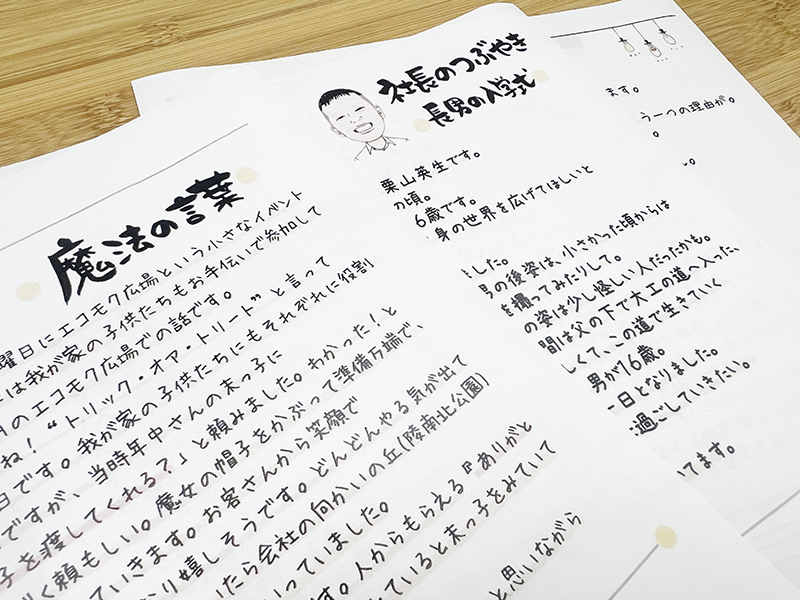 魔法の言葉
曜日にエコモク広場という小さなイベント
は我が家の子供たちもお手伝いで参加して
のエコモク広場での話です。
ね！“トリック・オア・トリート”と言って
日です。我が家の子供たちにもそれぞれに役割
ですが、当時年中さんの末っ子に
子を渡してくれる？」と頼みました。わかった！と
く頼もしい。魔女の帽子をかぶって準備万端で、
ていきます。お客さんから笑顔で
なり嬉しそうです。どんどんやる気が出て
たら会社の向かいの丘(陵南北公園)
っていました。
す。人からもらえる『ありがと
ていると末っ子をみていて
と思いながら
社長のつぶやき
長男の入学式
栗山英生です。
の頃。
6歳です。
身の世界を広げてほしいと
ました。
男の後姿は、小さかった頃からは
を撮ってみたりして。
の姿は少し怪しい人だったかも。
間は父の下で大工の道へ入った、
しくて、この道で生きていく
男が16歳。
一日となりました。
過ごしていきたい。
てます。
ます。
う一つの理由が。